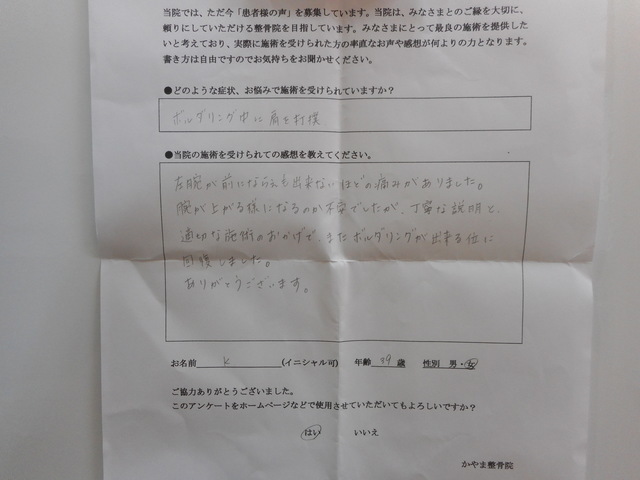 当院では、ただ今「患者様の声」を募集しています。当院は、みなさまとのご縁を大切に、
頼りにしていただける整骨院を目指しています。みなさまにとって最良の施術を提供した
いと考えており、実際に施術を受けられた方の率直なお声や感想が何よりの力となります。
書き方は自由ですのでお気持ちをお聞かせください。
●どのような症状、お悩みで施術を受けられていますか？
ボルダリング中に肩を打撲
●当院の施術を受けられての感想を教えてください。
左腕が前にならえも出来ないほどの痛みがありました。
腕が上がる様になるのか不安でしたが、丁寧な説明と、
適切な施術のおかげで、またボルダリングが出来る位に
回復しました。
ありがとうございます。
お名前 K (イニシャル可) 年齢 39 歳 性別 男・女
ご協力ありがとうございました。
このアンケートをホームページなどで使用させていただいてもよろしいですか？
はい いいえ
かやま整骨院